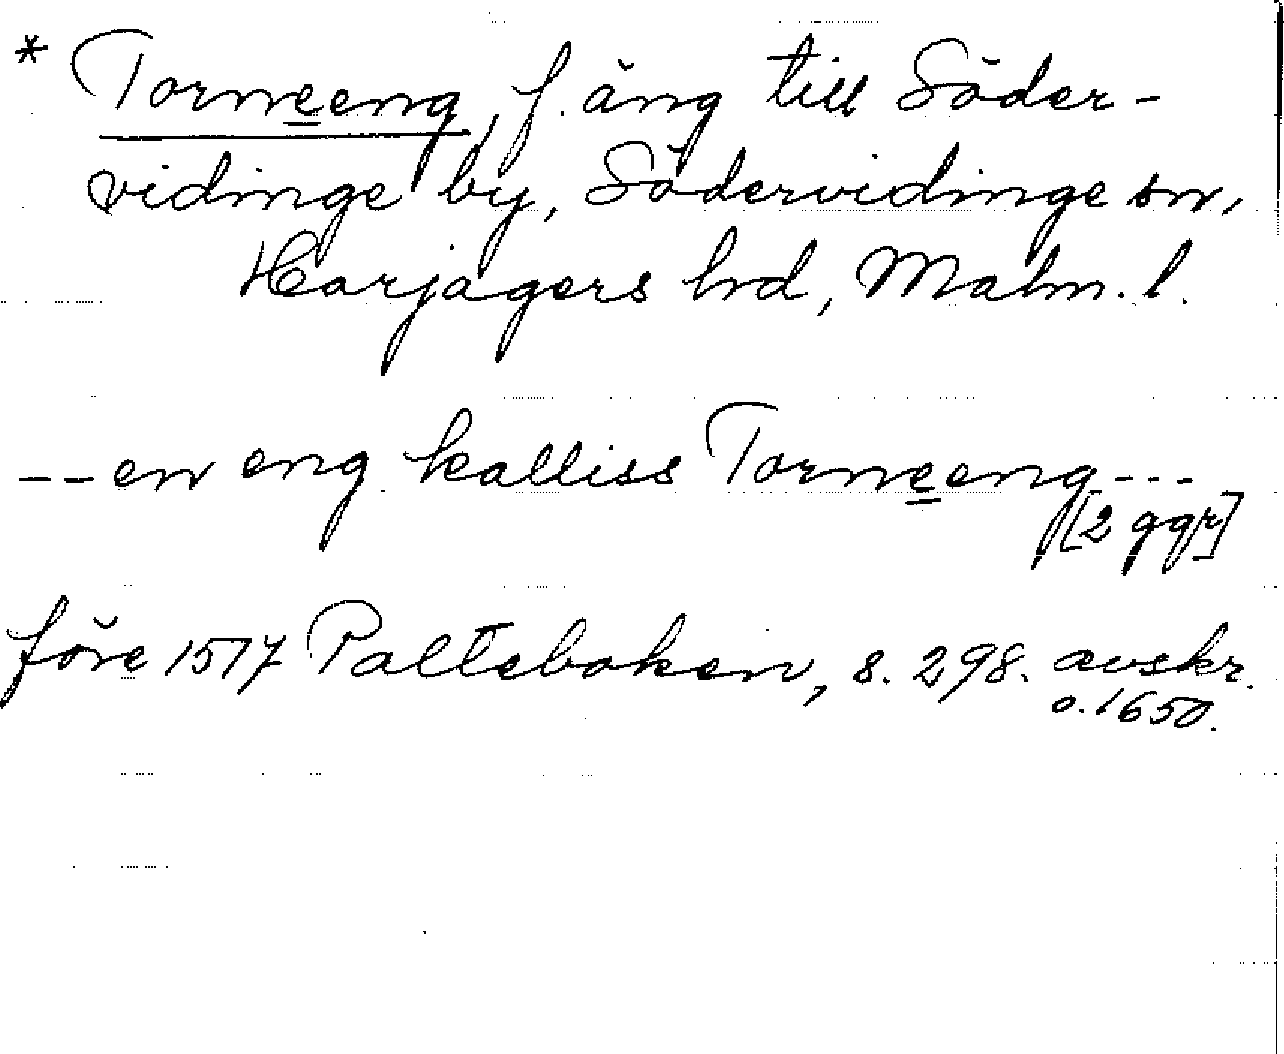 * Torneeng, f. äng till Söder-
vidinge by, Södervidinge sn,
Harjagers hd, Malm. l.
--en eng kalliss Torneeng---
[2 ggr]
före 1517 Palteboken, s. 298. avskr.
o. 1650.